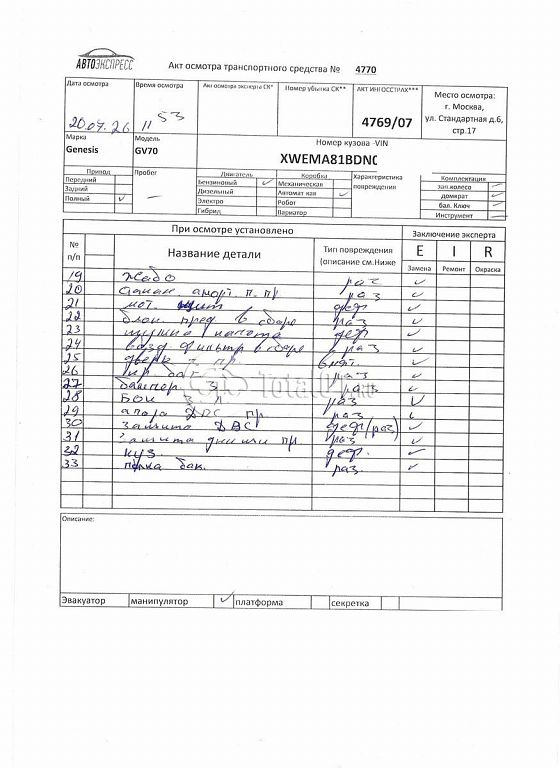 АВТОЭКСПРЕСС
Акт осмотра транспортного средства № 4770
Дата осмотра
20.07.26
Время осмотра
11 53
Акт осмотра эксперта СК*
Номер убытка СК**
АКТ ИНГОССТРАХ***
4769/07
Место осмотра:
г. Москва,
ул. Стандартная д.6,
стр.17
Марка
Genesis
Модель
GV70
Номер кузова -VIN
XWEMA81BDN
Привод
Передний
Задний
Полный ✓
Пробег
—
Двигатель
Бензиновый ✓
Дизельный
Электро
Гибрид
Коробка
Механическая
Автомат кая ✓
Робот
Вариатор
Характеристика
повреждения
Комплектация
зап.колесо
домкрат
бал. Ключ
Инструмент
При осмотре установлено
Заключение эксперта
№
п/п
Название детали
Тип повреждения
(описание см.Ниже
E I R
Замена Ремонт Окраска
19 жабо раз ✓
20 аморт. п. пр раз ✓
21 мот щит деф ✓
22 блок пред в сборе раз ✓
23 капота деф ✓
24 возд. фильтр в сборе раз ✓
25 дверь пр. ✓
26 раз ✓
27 бампер з раз ✓
28 раз ✓
29 опора ДВС пр раз ✓
30 защита ДВС деф (раз) ✓
31 защита днища пр раз ✓
32 куз. деф. ✓
33 полка бак. раз. ✓
Total01.ru
Описание:
Эвакуатор манипулятор ✓ платформа секретка